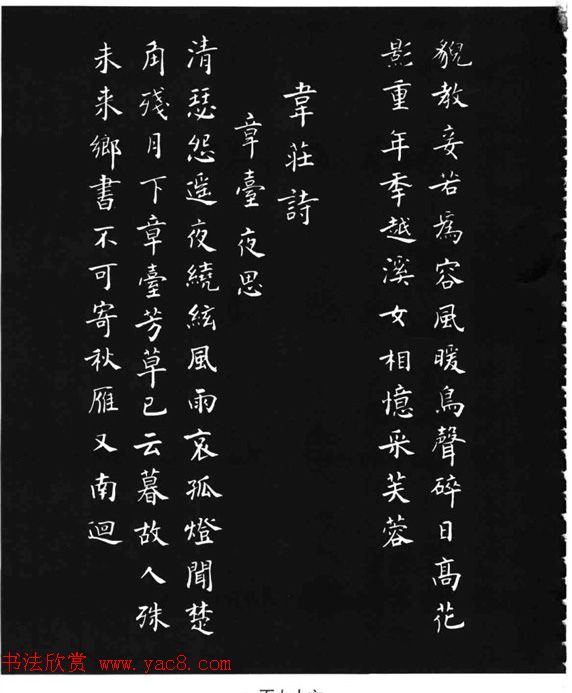 貌教妾若為容風暖鳥聲碎日高花
影重年季越溪女相憶采芙蓉
韋莊詩
章臺夜思
清瑟怨遥夜繞絃風雨哀孤燈聞楚
角殘月下章臺芳草已云暮故人殊
未来鄉書不可寄秋雁又南迴
书法欣赏 www.yac8.com